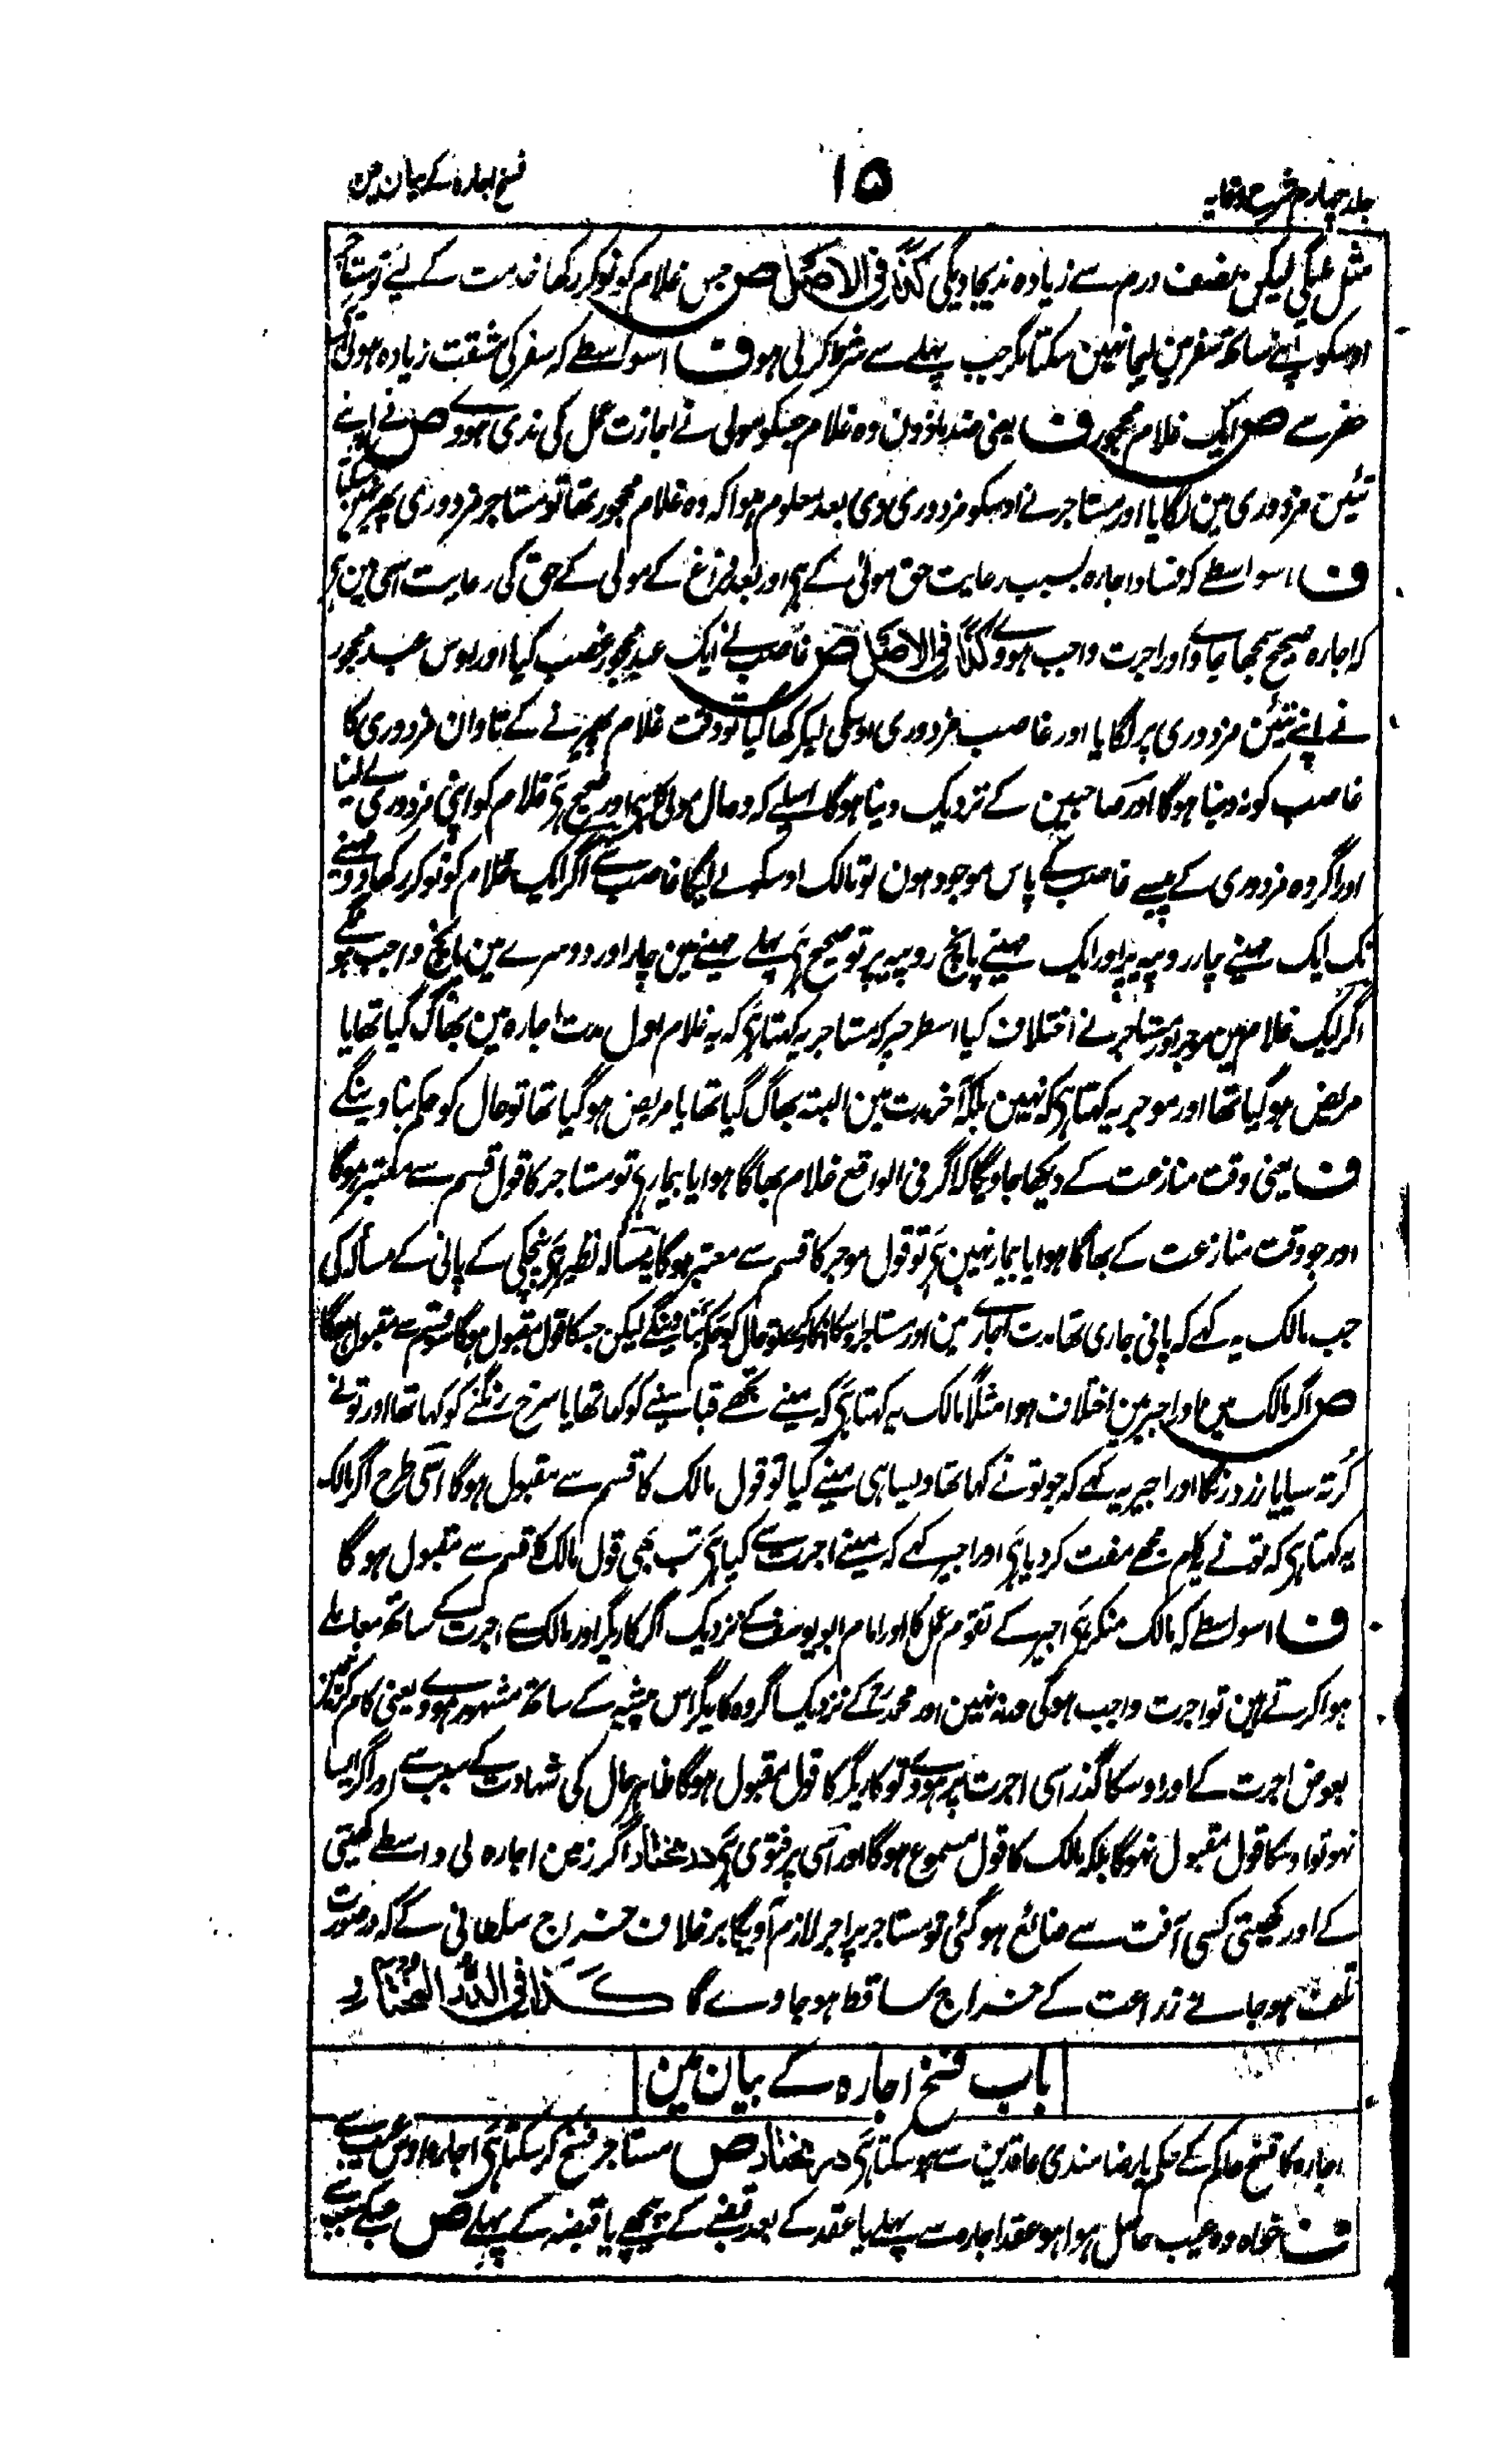 جلد چہارم شرح وقایہ
۱۵
فسخ اجارہ کے بیان مین
مثل ملیگی لیکن نصف درم سے زیادہ ندیجاویگی کذا فی الاصل ص جس غلام کو نوکر رکھا خدمت کے لیے تو مستاجر
اوسکو اپنے ساتھ سفر مین لیجا نہین سکتا مگر جب پہلے سے شرط کر لی ہو ف اسواسطے کہ سفر کی مشقت زیادہ ہوتی ہے
حضر سے ص ایک غلام مجور ف یعنی ضد ماذون وہ غلام جسکو مولی نے اجازت عمل کی ندی ہووے ص نے اپنے
تئین مزدوری مین لگایا اور مستاجر نے اوسکو مزدوری دی بعد معلوم ہوا کہ وہ غلام مجور تھا تو مستاجر مزدوری پھیر نہین سکتا
ف اسواسطے کہ فساد اجارہ بسبب رعایت حق مولی کے ہی اور بعد فراغ کے مولی کے حق کی رعایت اسی مین ہی
کہ اجارہ صحیح سمجھا جاوے اور اجرت واجب ہووے کذا فی الاصل ص غاصب نے ایک عبد مجور غصب کیا اور اوس عبد مجور
نے اپنے تئین مزدوری پر لگایا اور غاصب مزدوری اوسکی لیکر کھا گیا تو وقت غلام پھیرنے کے تاوان مزدوری کا
غاصب کو نہ دینا ہوگا اور صاحبین کے نزدیک دینا ہوگا اسلیے کہ وہ مال مولی کا ہی اور صحیح ہی غلام کو اپنی مزدوری لے لینا
اور اگر وہ مزدوری کے پیسے غاصب کے پاس موجود ہون تو مالک اوسکو لے لیگا غاصب سے اگر ایک غلام کو نوکر رکھا دو مہینے
تک ایک مہینے چار روپیہ پر اور ایک مہینے پانچ روپیہ پر تو صحیح ہی پہلے مہینے مین چار اور دوسرے مین پانچ واجب ہونگے
اگر ایک غلام مین موجر اور مستاجر نے اختلاف کیا اسطرح پر کہ مستاجر یہ کہتا ہی کہ یہ غلام اول مدت اجارہ مین بھاگ گیا تھا یا
مریض ہو گیا تھا اور موجر یہ کہتا ہی کہ نہین بلکہ آخر مدت مین البتہ بھاگ گیا تھا یا مریض ہو گیا تھا تو حال کو حکم بناوینگے
ف یعنی وقت منازعت کے دیکھا جاویگا کہ اگر فی الواقع غلام بھاگا ہوا یا بیمار ہی تو مستاجر کا قول قسم سے معتبر ہوگا
اور جو وقت منازعت کے بھاگا ہوا یا بیمار نہین ہی تو قول موجر کا قسم سے معتبر ہوگا یہ مسألہ نظیر ہی پنچکی کے پانی کے مسألہ کی
جب مالک یہ کہے کہ پانی جاری تھا مدت اجارے مین اور مستاجر اوسکا انکار کرے تو حال کو حکم بناوینگے لیکن جسکا قول مقبول ہوگا قسم سے مقبول ہوگا
ص اگر مالک مین اور اجیر مین اختلاف ہوا مثلاً مالک یہ کہتا ہی کہ مینے تجھے قبا سینے کو کہا تھا یا سرخ رنگنے کو کہا تھا اور تو نے
کرتہ سیا یا زرد رنگا اور اجیر یہ کہے کہ جو تو نے کہا تھا ویسا ہی مینے کیا تو قول مالک کا قسم سے مقبول ہوگا اسی طرح اگر مالک
یہ کہتا ہی کہ تو نے یہ کام مجھے مفت کر دیا ہی اور اجیر کہے کہ مینے اجرت سے کیا ہی تب بھی قول مالک کا قسم سے مقبول ہوگا
ف اسواسطے کہ مالک منکر ہی اجیر کے تقوم عمل کا اور امام ابو یوسف کے نزدیک اگر کاریگر اور مالک سے اجرت کے ساتھ معاملے
ہوا کرتے ہین تو اجرت واجب ہوگی ورنہ نہین اور محمد رح کے نزدیک اگر وہ کاریگر اس پیشہ کے ساتھ مشہور ہووے یعنی کام کرنے مین
بعوض اجرت کے اور اوسکا گذر اسی اجرت پر ہووے تو کاریگر کا قول مقبول ہوگا ظاہر حال کی شہادت کے سبب سے اور اگر ایسا
نہو تو اوسکا قول مقبول نہوگا بلکہ مالک کا قول مسموع ہوگا اور اسی پر فتوی ہی در مختار اگر زمین اجارہ لی واسطے کھیتی
کے اور کھیتی کسی آفت سے ضائع ہو گئی تو مستاجر پر اجر لازم آویگا بر خلاف خراج سلطانی کے کہ در صورت
تلف ہو جانے زراعت کے خراج ساقط ہو جاوے گا کذا فی الدر المختار
باب فسخ اجارہ کے بیان مین
اجارہ کا فسخ حاکم کے حکم یا رضامندی عاقدین سے ہو سکتا ہی در مختار ص مستاجر فسخ کر سکتا ہی اجارہ اوس عیب سے
ف خواہ وہ عیب حاصل ہوا ہو عقد اجارہ سے پہلے یا عقد کے بعد قبضے کے پیچھے یا قبضہ کے پہلے ص جسکے سبب سے